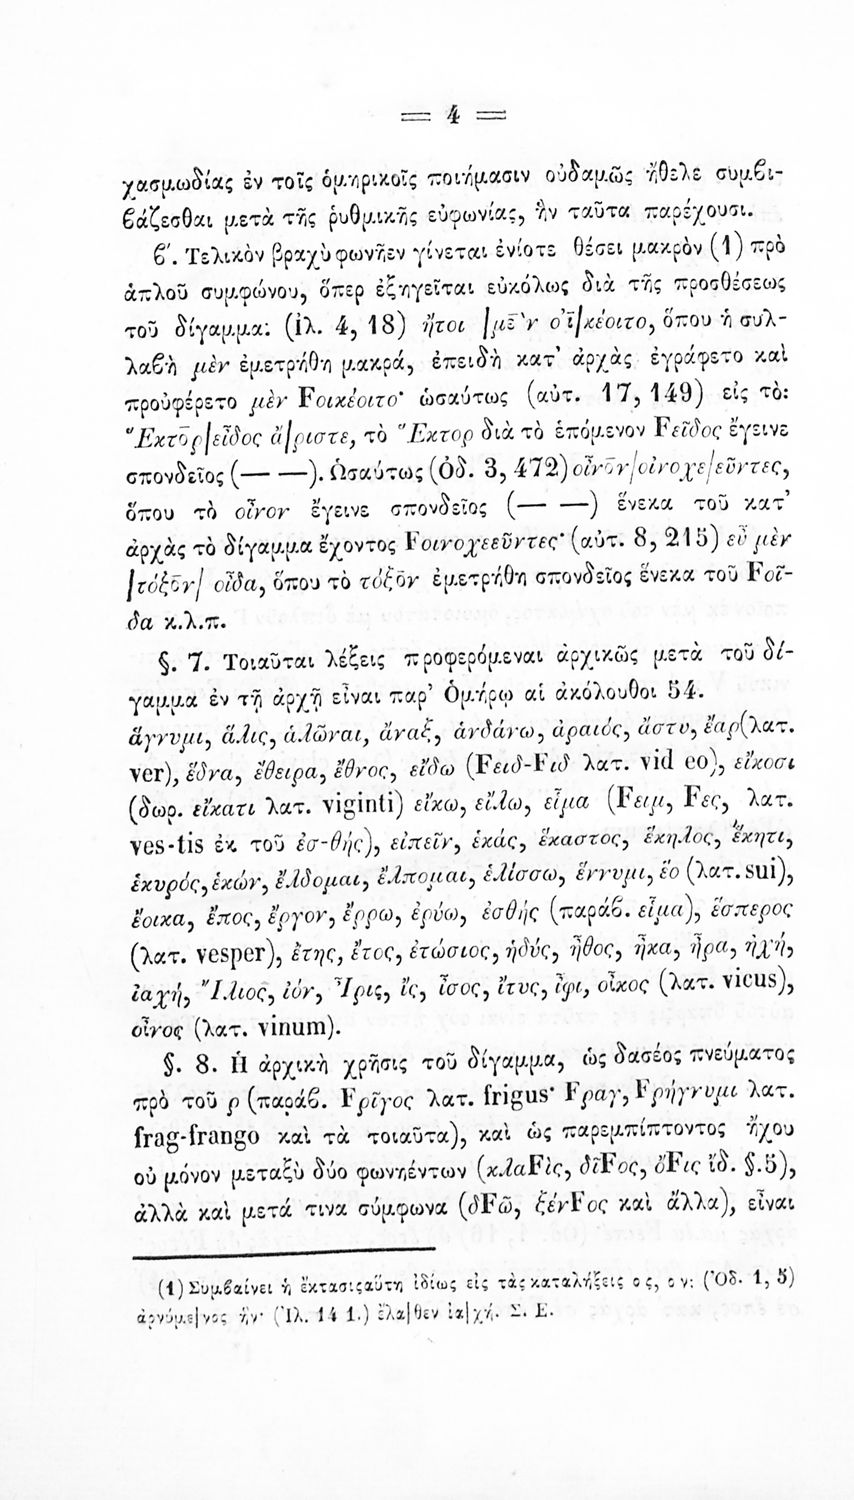 = 4 =
χασμωδίας ἐν τοῖς ὁμηρικοῖς ποιήμασιν οὐδαμῶς ἤθελε συμβι-
βάζεσθαι μετὰ τῆς ῥυθμικῆς εὐφωνίας, ἣν ταῦτα παρέχουσι.
β΄. Τελικὸν βραχὺ φωνῆεν γίνεται ἐνίοτε θέσει μακρὸν (1) πρὸ
ἁπλοῦ συμφώνου, ὅπερ ἐξηγεῖται εὐκόλως διὰ τῆς προσθέσεως
τοῦ δίγαμμα: (ἰλ. 4, 18) ἤτοι |με̄̀ν ο’ῑ|κέοιτο, ὅπου ἡ συλ-
λαβὴ μὲν ἐμετρήθη μακρά, ἐπειδὴ κατ’ ἀρχὰς ἐγράφετο καὶ
προὐφέρετο μὲν Fοικέοιτο· ὡσαύτως (αὐτ. 17, 149) εἰς τὸ:
"Εκτο̄ρ|εἶδος ἄ|ριστε, τὸ "Εκτορ διὰ τὸ ἑπόμενον Fεῖδος ἔγεινε
σπονδεῖος (— —). Ὡσαύτως (Ὀδ. 3, 472) οἶνο̄ν|οἰνοχε|εῦντες,
ὅπου τὸ οἶνον ἔγεινε σπονδεῖος (— —) ἕνεκα τοῦ κατ’
ἀρχὰς τὸ δίγαμμα ἔχοντος Fοινοχεεῦντες· (αὐτ. 8, 215) εὖ μὲν
|τόξο̄ν| οἶδα, ὅπου τὸ τόξο̄ν ἐμετρήθη σπονδεῖος ἕνεκα τοῦ Fοῖ-
δα κ.λ.π.
§. 7. Τοιαῦται λέξεις προφερόμεναι ἀρχικῶς μετὰ τοῦ δί-
γαμμα ἐν τῇ ἀρχῇ εἶναι παρ’ Ὁμήρῳ αἱ ἀκόλουθοι 54.
ἄγνυμι, ἅλις, ἁλῶναι, ἄναξ, ἁνδάνω, ἀραιός, ἄστυ, ἔαρ(λατ.
ver), ἕδνα, ἔθειρα, ἔθνος, εἴδω (Fειδ-Fιδ λατ. vid eo), εἴκοσι
(δωρ. εἴκατι λατ. viginti) εἴκω, εἴλω, εἷμα (Fειμ, Fες, λατ.
ves-tis ἐκ τοῦ ἐσ-θής), εἰπεῖν, ἑκάς, ἕκαστος, ἕκηλος, ἕκητι,
ἑκυρός, ἑκών, ἔλδομαι, ἔλπομαι, ἑλίσσω, ἕννυμι, ἕο (λατ. sui),
ἔοικα, ἔπος, ἔργον, ἔρρω, ἐρύω, ἐσθής (παράβ. εἷμα), ἕσπερος
(λατ. vesper), ἔτης, ἔτος, ἐτώσιος, ἡδύς, ἦθος, ἦκα, ἦρα, ἠχή,
ἰαχή, Ἴλιος, ἰόν, Ἶρις, ἴς, ἶσος, ἴτυς, ἶφι, οἶκος (λατ. vicus),
οἶνος (λατ. vinum).
§. 8. Ἡ ἀρχικὴ χρῆσις τοῦ δίγαμμα, ὡς δασέος πνεύματος
πρὸ τοῦ ρ (παράβ. Fρῖγος λατ. frigus· Fραγ, Fρήγνυμι λατ.
frag-frango καὶ τὰ τοιαῦτα), καὶ ὡς παρεμπίπτοντος ἤχου
οὐ μόνον μεταξὺ δύο φωνηέντων (κλαFὶς, δῖFος, ὄFις ἴδ. §.5),
ἀλλὰ καὶ μετά τινα σύμφωνα (δFῶ, ξένFος καὶ ἄλλα), εἶναι
(1) Συμβαίνει ἡ ἔκτασις αὕτη ἰδίως εἰς τὰς καταλήξεις ος, ον: (Ὀδ. 1, 5)
ἀρνύμε|νος ἥν· (Ἰλ. 14 1.) ἔλα|θεν ἰα|χή. Σ. Ε.